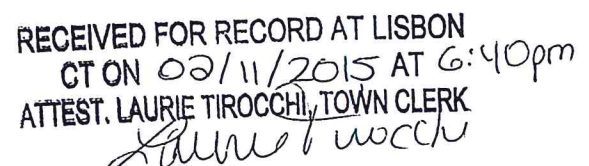 RECEIVED FOR RECORD AT LISBON
CT ON 02/11/2015 AT 6:40pm
ATTEST. LAURIE TIROCCHI, TOWN CLERK
Laurie Tirocchi